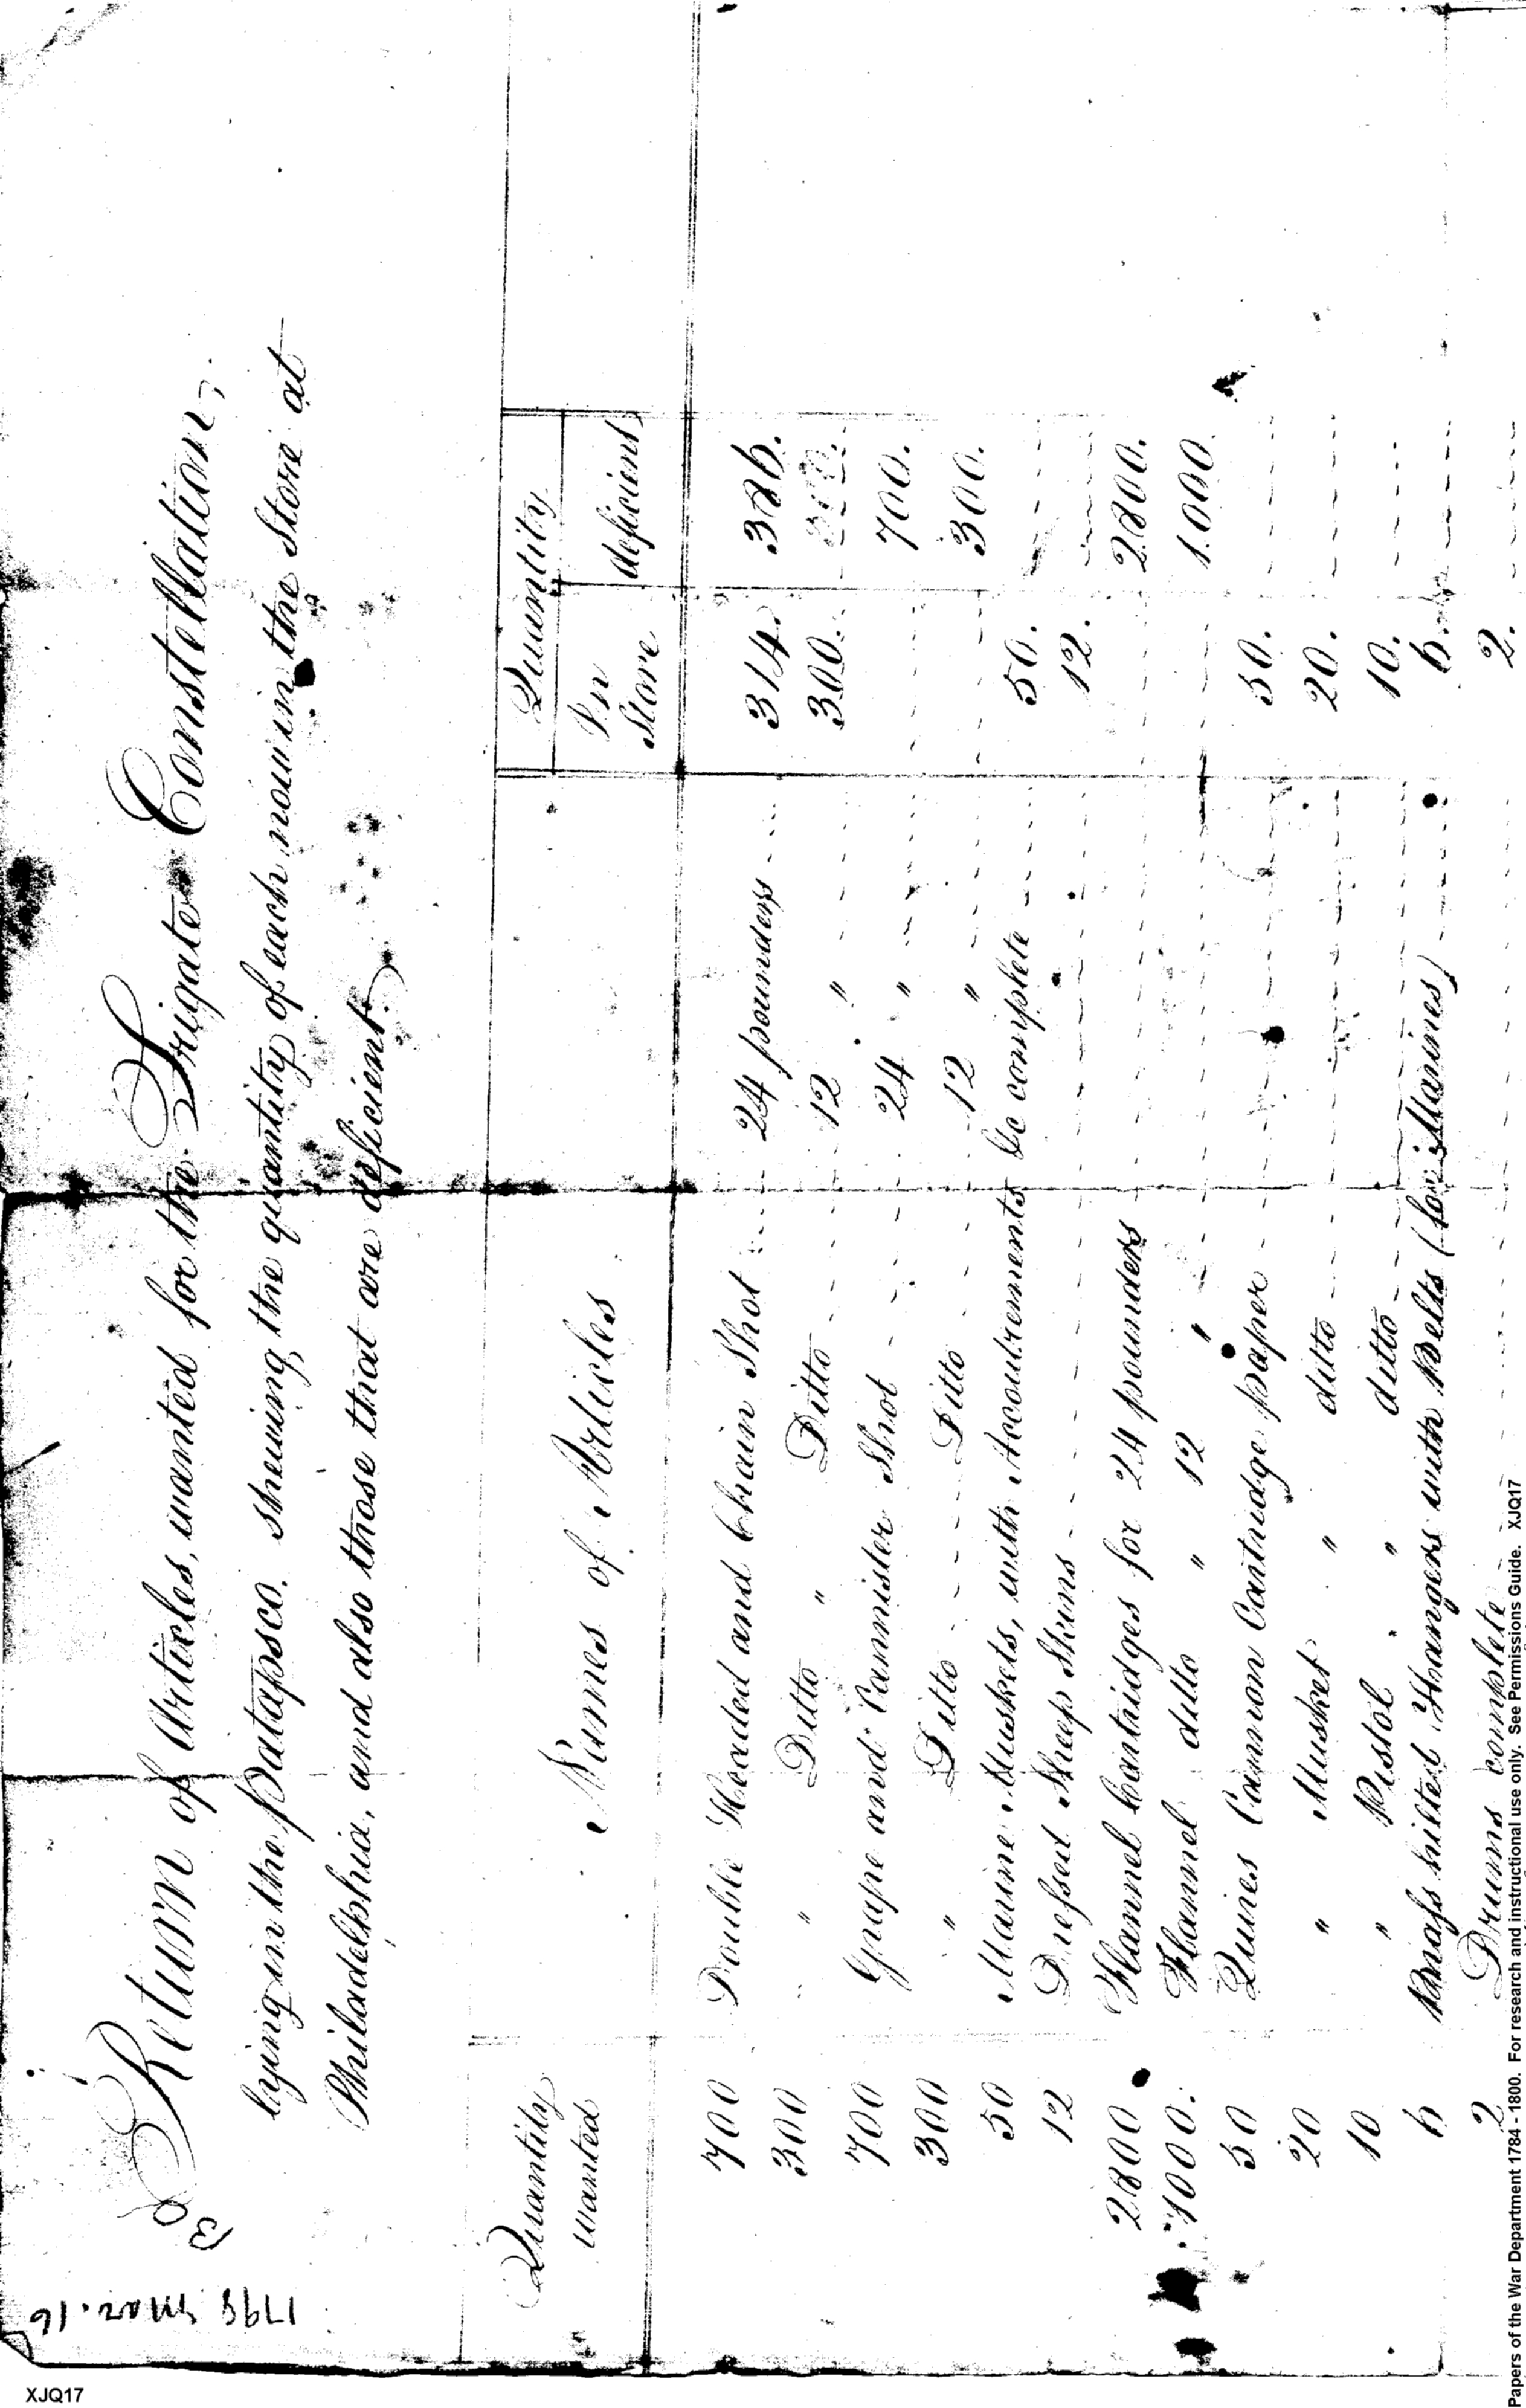 1798 Mar. 16
Return of Articles, wanted for the Frigate Constellation,
lying in the Patapsco. shewing the quantity of each now in the Store at
Philadelphia, and also those that are deficient.
Quantity wanted Names of Articles Quantity
In Store deficient
700 Double Headed and Chain Shot 24 pounders 314. 386.
300 " Ditto " Ditto 12 " 300.
700 Grape and Cannister Shot 24 " 700.
300 " Ditto Ditto 12 " 300.
50 Marine Muskets, with Accoutrements &c complete 50.
12 Dressed Sheep Skins 12.
2800 Flannel Cartridges for 24 pounders 2800.
1000. Flannel ditto " 12 " 1.000
50 Quires Cannon Cartridge paper 50.
20 " Musket " ditto 20.
10 " Pistol " ditto 10.
6 Brass hilted Hangers with Belts (for Marines) 6.
2 Drums complete 2.
XJQ17
Papers of the War Department 1784 - 1800. For research and instructional use only. See Permissions Guide. XJQ17